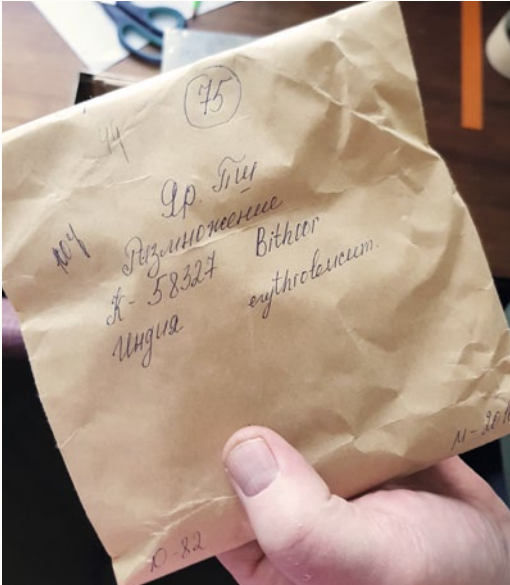 75
44
Яр. Пш
104
Размножение
К-58327 Bithoor
Индия erythroleucum.
М-201
Ю-82